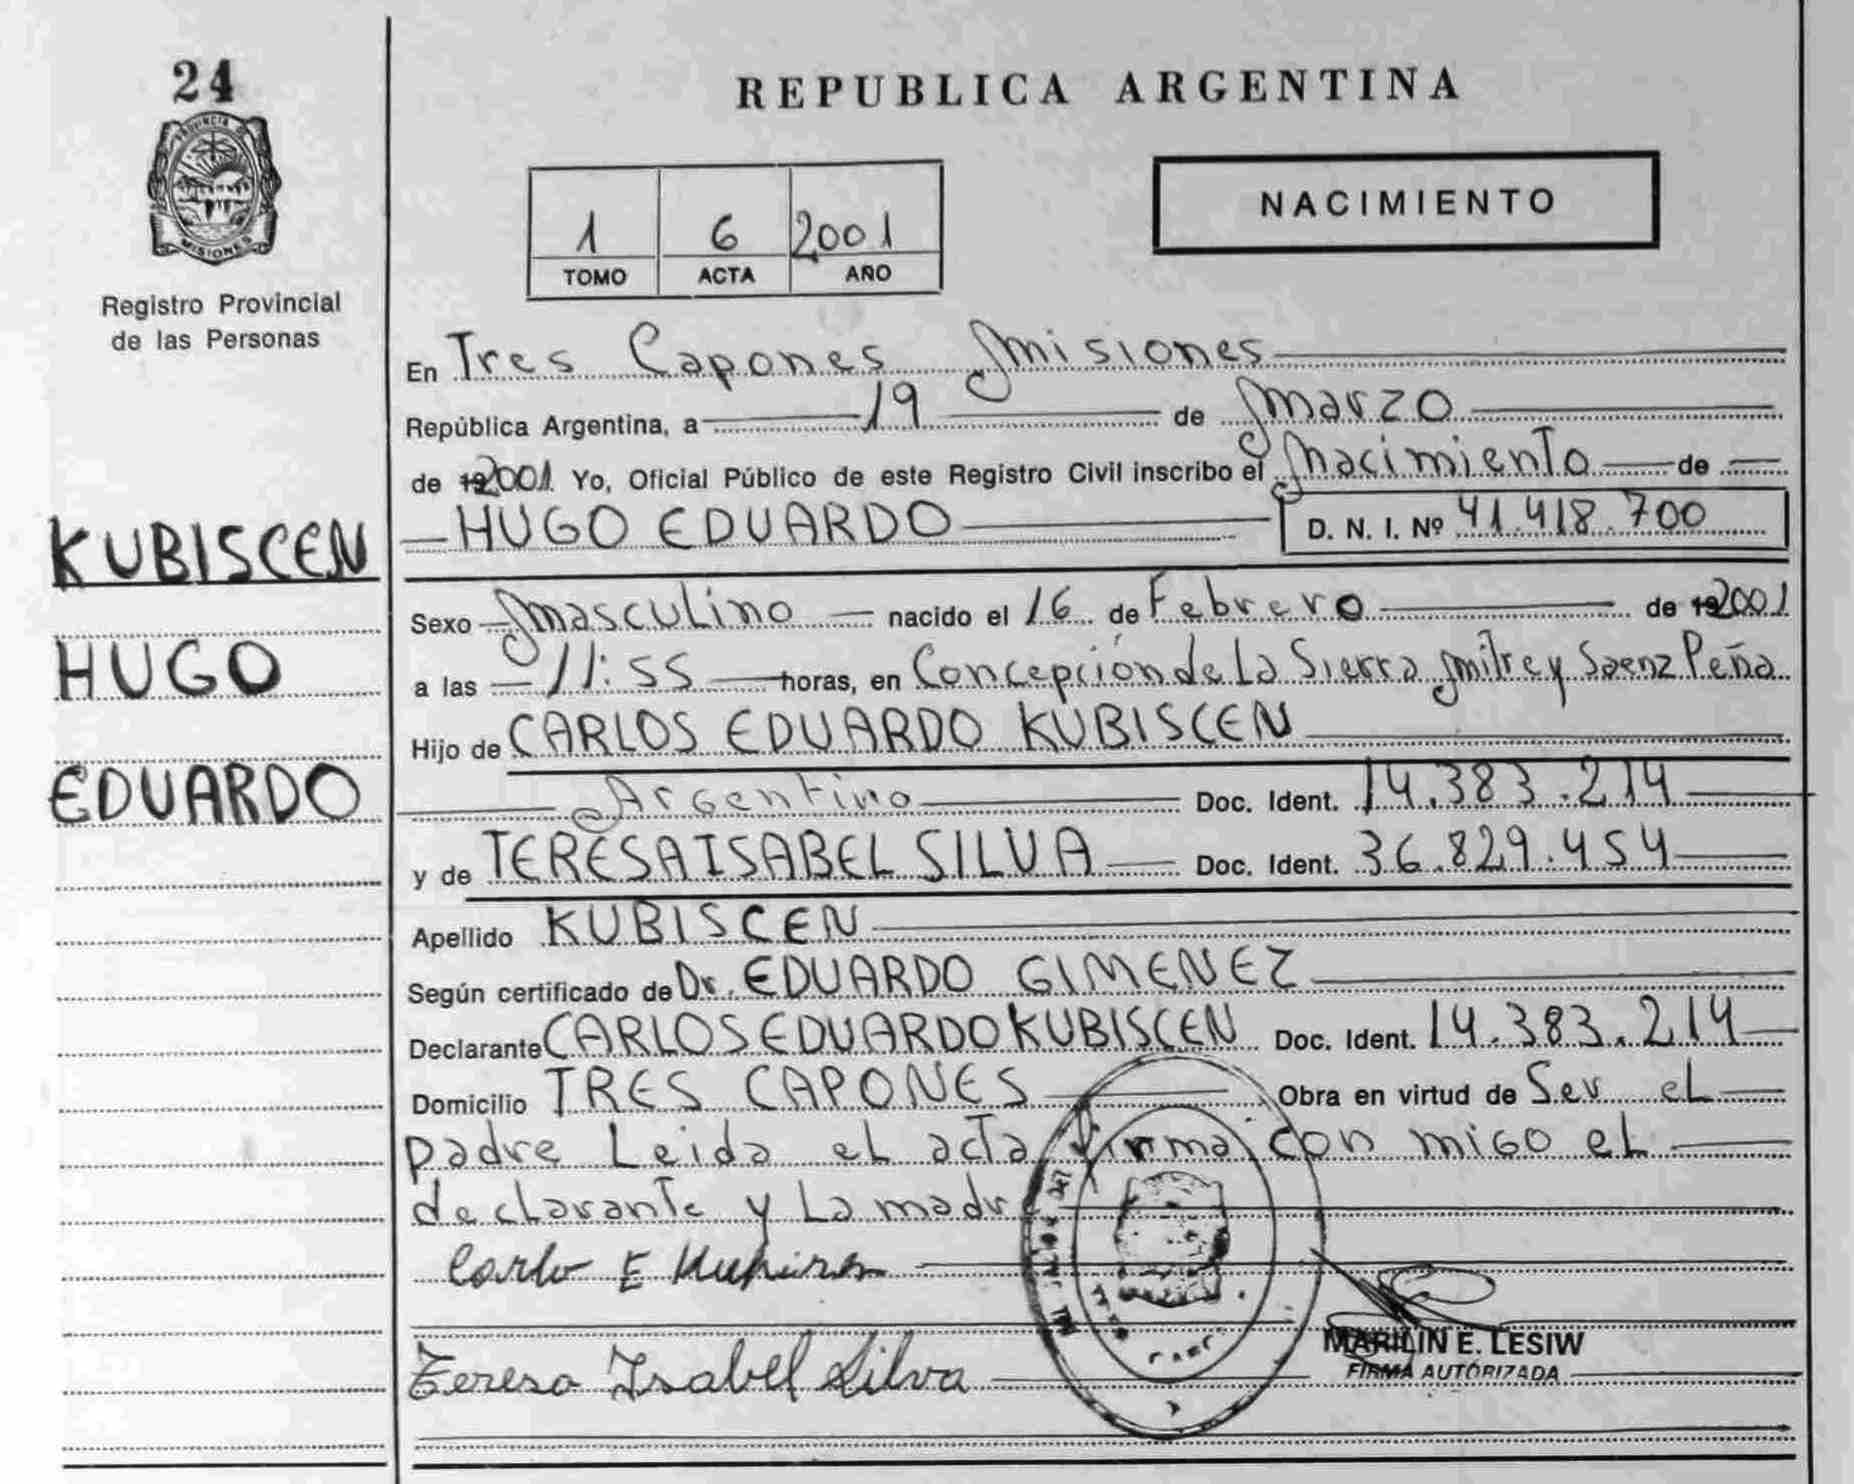 24
PROVINCIA DE
MISIONES
Registro Provincial
de las Personas
KUBISCEN
HUGO
EDUARDO
REPUBLICA ARGENTINA
1 6 2001
TOMO ACTA AÑO
NACIMIENTO
En Tres Capones Misiones
República Argentina, a 19 de Marzo
de 192001 Yo, Oficial Público de este Registro Civil inscribo el Nacimiento de
HUGO EDUARDO D. N. I. Nº 41.418.700
Sexo Masculino nacido el 16 de Febrero de 192001
a las 11:55 horas, en Concepción de La Sierra Mitre y Saenz Peña
Hijo de CARLOS EDUARDO KUBISCEN
Argentino Doc. Ident. 14.383.214
y de TERESA ISABEL SILVA Doc. Ident. 36.829.454
Apellido KUBISCEN
Según certificado de Dr. EDUARDO GIMENEZ
Declarante CARLOS EDUARDO KUBISCEN Doc. Ident. 14.383.214
Domicilio TRES CAPONES Obra en virtud de Ser el
padre Leida el acta firma con migo el
declarante y La madre
Carlo E
Teresa Isabel Silva
MARILIN E. LESIW
FIRMA AUTORIZADA